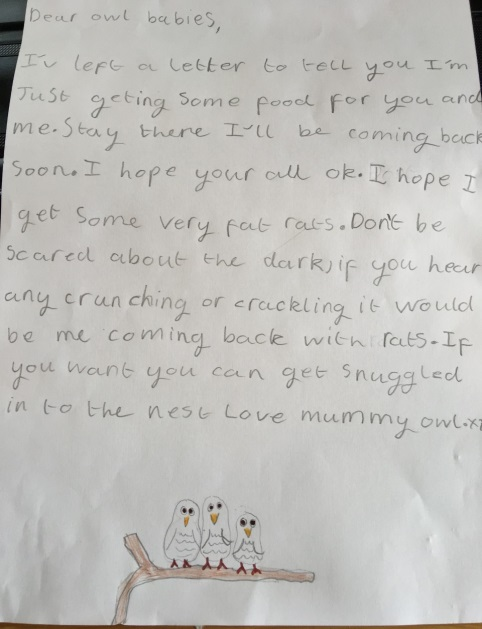 Dear owl babies,
I'v left a letter to tell you I'm
Just geting some food for you and
me. Stay there I'll be coming back
soon. I hope your all ok. I hope I
get some very fat rats. Don't be
scared about the dark, if you hear
any crunching or crackling it would
be me coming back with rats. If
you want you can get snuggled
in to the nest Love mummy owl.x